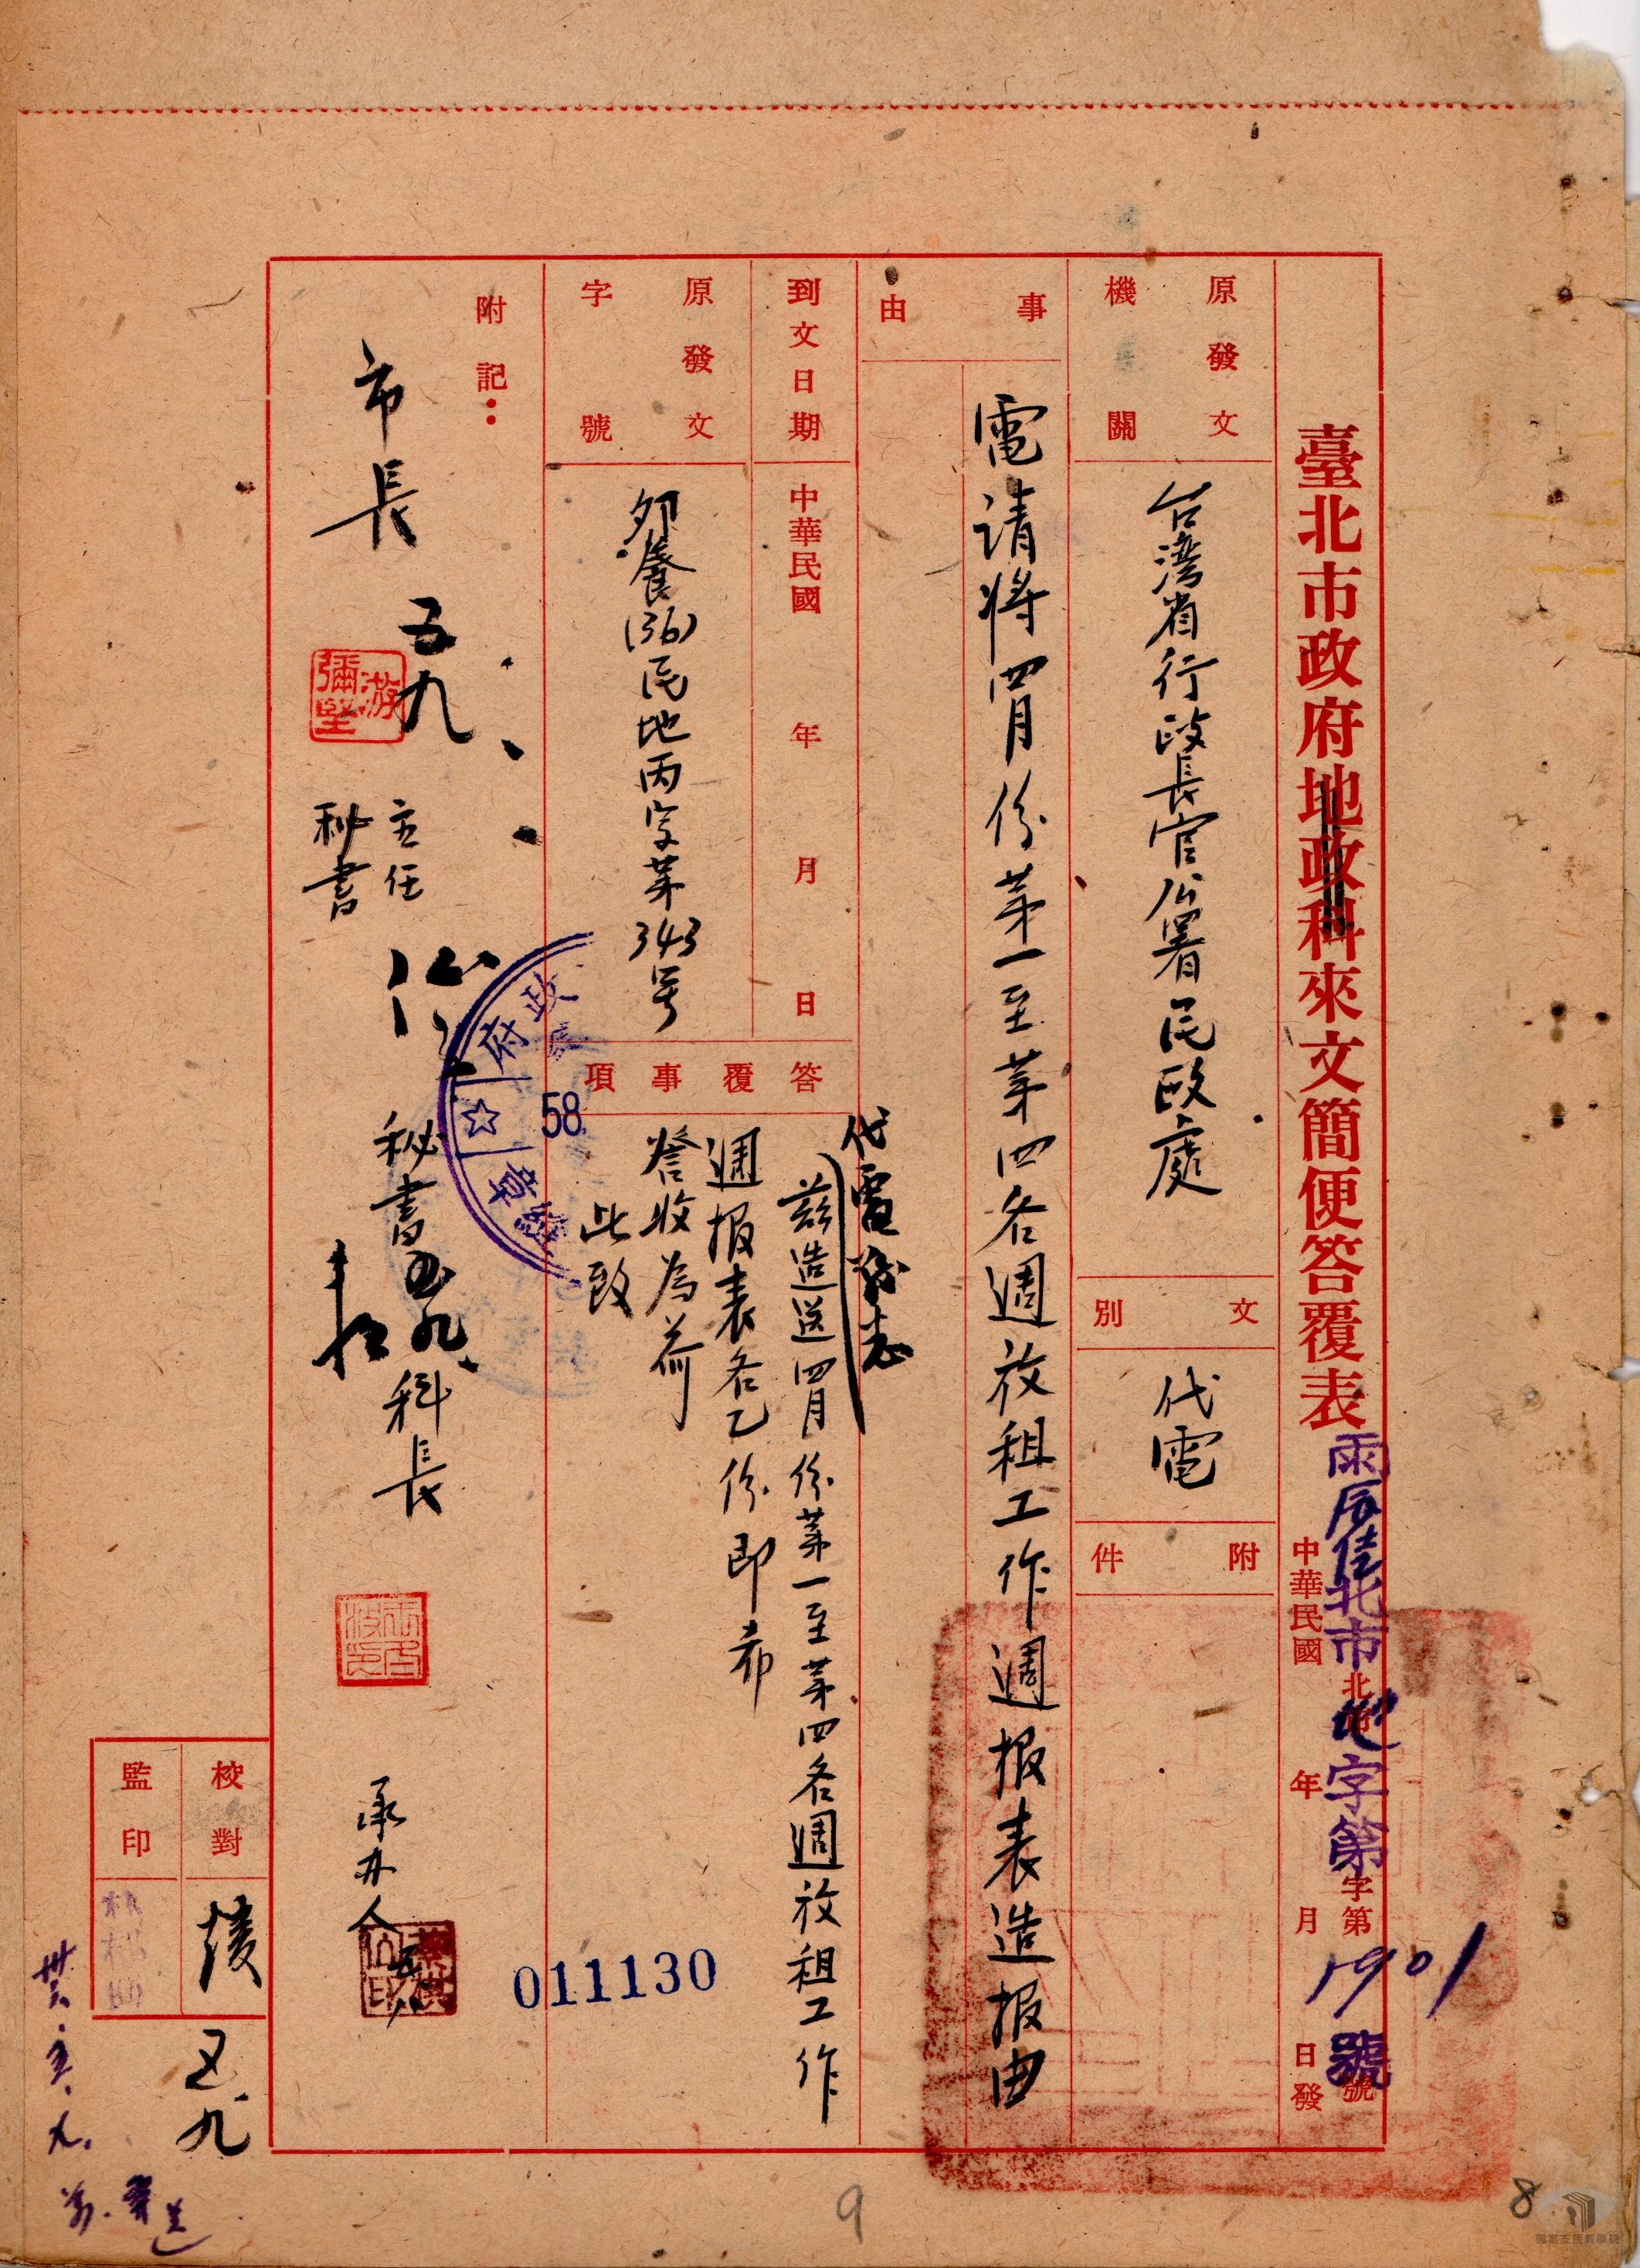 臺北市政府地政科來文簡便答覆表
中華民國 年 月 日發
北市 字第 號
北市地字第1901號
原發文機關
台湾省行政長官公署民政處
文別
代電
附件
事由
電请将四月份苐一至苐四各週放租工作週报表造报由
到文日期
中華民國 年 月 日
原發文字號
卯養(36)民地丙字苐343号
答覆事項
代電
茲造送四月份苐一至苐四各週放租工作
週报表各乙份即希
詧收為荷
此致
附記：
市長 五九
游彌堅
主任
秘書
秘書
科長
承办人
政府
58
011130
校對
五、九
監印
卅六.五.九.
9
8
檔案支援教學網